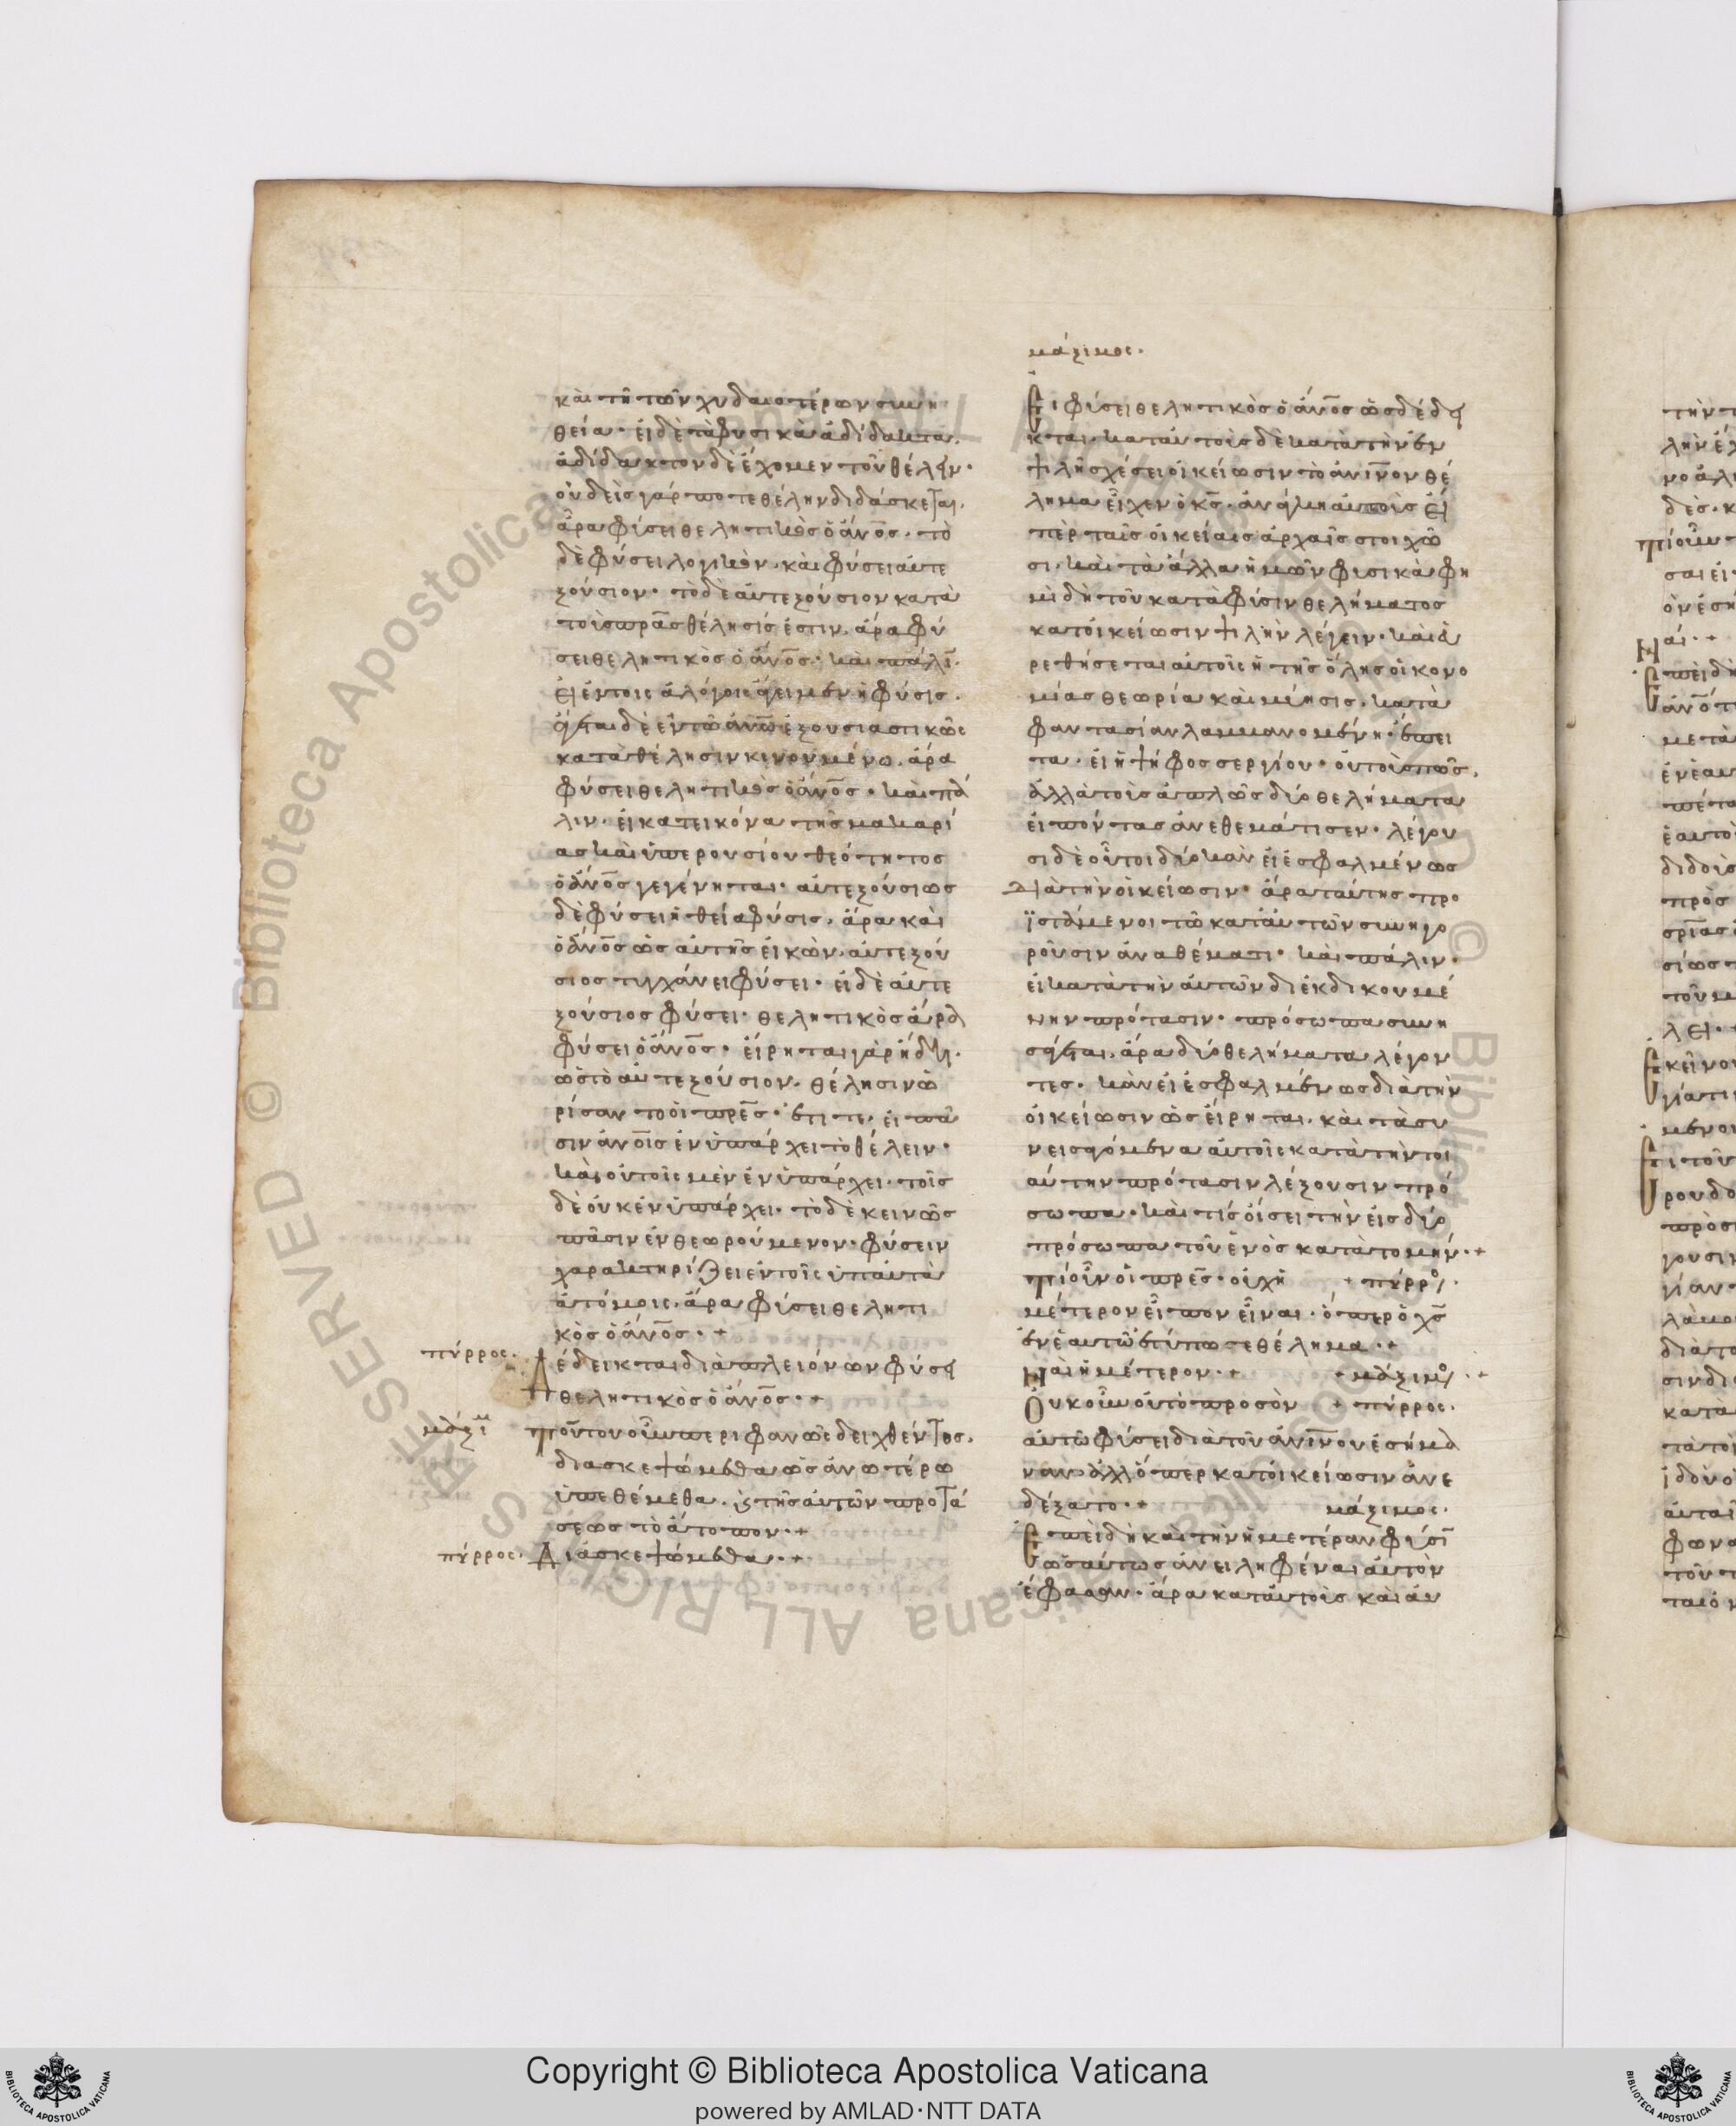 καὶ τῆ τῶν χυδαιοτέρων συνη
θεία· εἰ δὲ τὰ φυσικὰ ἀδίδακτα.
ἀδίδακτον δὲ ἔχομεν τοῦ θέλειν·
οὐδεὶς γάρ ποτε θέλην διδάσκεται.
ἆρα φύσει θελητικὸς ὁ ἄνος· τὸ
δὲ φύσει λογικὸν. καὶ φύσει αὐτε
ξούσιον· τὸ δὲ αὐτεξούσιον κατὰ
τοὶς πρας θέλησίς ἐστιν. ἄρα φύ
σει θελητικὸς ὁ ἄνος· καὶ πάλι
εἰ ἐν τοις ἀλόγοις ἄγει μὲν ἡ φύσις.
ἄγεται δὲ ἐν τῶ ἀνω ἐξουσιαστικῶς
κατὰ θέλησιν κινουμένω. ἄρα
φύσει θελητικὸς ὁ ἄνος· καὶ πά
λιν· εἰ κατεικόνα τῆς μακαρί
ας καὶ ὑπερουσίου θεότητος
ὁ ἄνος γεγένηται· αὐτεξούσιος
δὲ φύσει ἡ θεία φύσις. ἄρα καὶ
ὁ ἄνος ὡς αὐτῆς εἰκὼν. αὐτεξού
σιος τυγχάνει φύσει· εἰ δὲ αὐτε
ξούσιος φύσει· θελητικὸς ἄρα
φύσει ὁ ἄνος· εἴρηται γὰρ ἤδη.
ὡς τὸ αὐτεξούσιον. θέλησιν ὡ
ρίσαν το οἱ πρες· ἔτι τε. εἰ πᾶ
σιν ἀνοις ἐνϋπάρχει τὸ θέλειν·
καὶ οὐ τοῖς μὲν ἐνϋπάρχει. τοῖς
δὲ οὐκ ἐνϋπάρχει· τὸ δὲ κεινῶς
πᾶσιν ἐνθεωρούμενον· φύσειν
χαρακτηρίζει ἐν τοῖς ὑπαυτὰ
ἀτόμοις. ἄρα φύσει θελητι
κὸς ὁ ἄνος· +
πύρρος.
Δέδεικται διὰ πλειόνων φύσει
θελητικὸς ὁ ἄνος· +
μάξιμ
Τούτου οὖν περιφανῶς δειχθέντος.
διασκεψώμεθα ὡς ἀνωτέρω
ὑπεθέμεθα. καὶ τῆς αὐτῶν προτά
σεως τὸ ἄτοπον· +
πύρρος.
Διάσκεψώμεθα· +
μάξιμος.
Εἰ φύσει θελητικὸς ὁ ἄνος ὡς δέδει
κται. κατ αὐτοὶς δὲ κατὰ τὴν ἐν
ψιλῆ σχέσει οἰκείωσιν τὸ ἀνινον θέ
λημα εἶχεν ὁ κς. ἀνάγκη αὐτοὶς εἴ
περ ταῖς οἰκείαις ἀρχαῖς στοιχῶ
σι. καὶ τὰ ἄλλα ἡμῶν φυσικὰ φη
μὶ δὴ τοῦ κατὰ φύσιν θελήματος
κατοικείωσιν ψιλὴν λέγειν· καὶ εὑ
ρεθήσεται αὐτοῖς ἡ τῆς ὅλης οἰκονο
μίας θεωρία καὶ μύησις. κατὰ
φαντασίαν λαμμανομένη· ἔπει
τα. εἰ ἡ ψῆφος σεργίου. οὐ τοὶς πῶς.
ἀλλὰ τοὶς ἁπλῶς δύο θελήματα
εἰπόντας ἀνεθεμάτισεν· λέγου
σι δὲ οὗτοι δύο κὰν εἰ ἐσφαλμένως
διὰ τὴν οἰκείωσιν· ἄρα ταύτης προ
ϊστάμενοι τῶ κατ αὐτῶν συνηγο
ροῦσιν ἀναθέματι· καὶ πάλιν.
εἰ κατὰ τὴν αὐτῶν διεκδικουμέ
νην πρότασιν· πρόσωπα συνη
σάγεται. ἄρα δύο θελήματα λέγον
τες. κὰν εἰ ἐσφαλμένως διὰ τὴν
οἰκείωσιν ὡς εἴρηται. καὶ τὰ συ
νεισαγόμενα αὐτοῖς κατὰ τὴν τοι
αύτην πρότασιν λέξουσιν πρό
σωπα. καὶ τίς οἴσει τὴν εἰς δύο
πρόσωπα τοῦ ἑνὸς κατὰ τομήν· +
Τί οὖν οἱ πρες· οὐχὴ + πύρρο.
μέτερον εἶπον εἶναι. ὅπερ ὁ χς
ἐν ἑαυτῶ ἐτύπωσε θέλημα· +
Ναὶ ἡμέτερον· + + μάξιμο. +
Οὐκοῦν οὐ τὸ προσὸν + πύρρος.
αὐτῶ φύσει διὰ τοῦ ἀνινου ἐσήμα
ναν. ἀλλ ὅπερ κατοικείωσιν ἀνε
δέξατο· + μάξιμος.
Ἐπειδὴ καὶ τὴν ἡμετέραν φύσι
ὡσαύτως ἀνειληφέναι αὐτὸν
ἔφασαν· ἄρα κατ αὐτοὶς καὶ αὐ
Copyright © Biblioteca Apostolica Vaticana
powered by AMLAD·NTT DATA